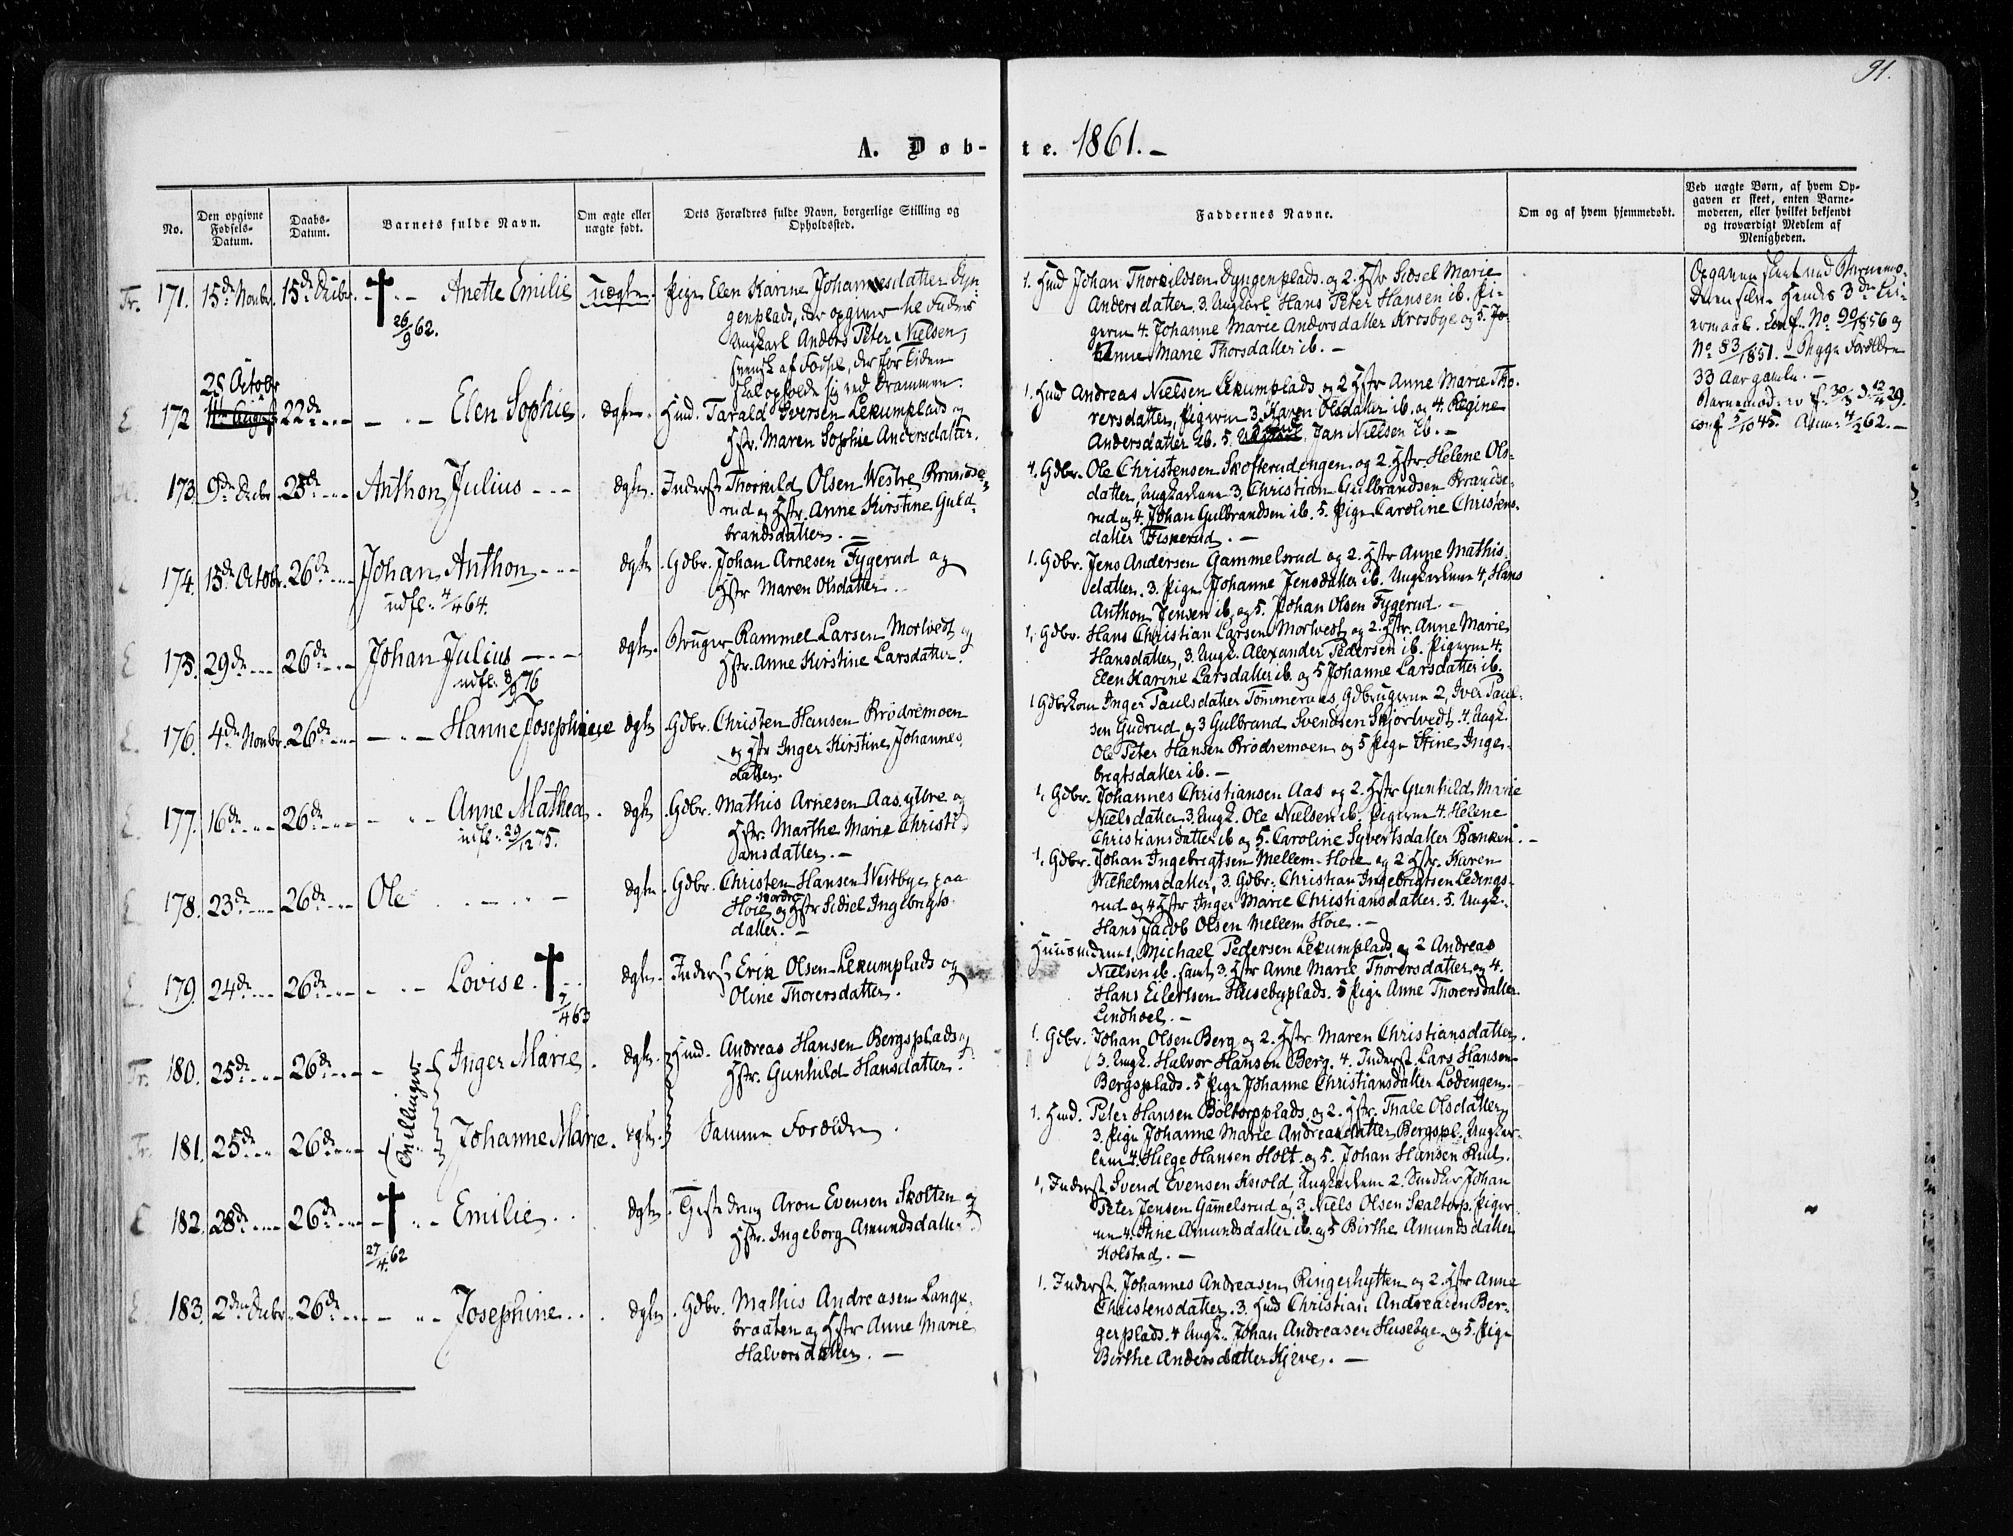 91.
A. Døb-
te. 1861. –
No.
Den opgivne
Fødsels-
Datum.
Daabs-
Datum.
Barnets fulde Navn.
Om ægte eller
uægte født.
Dets Forældres fulde Navn, borgerlige Stilling og
Opholdssted.
Faddernes Navne.
Om og af hvem hjemmedøbt.
Ved uægte Børn, af hvem Op-
gaven er skeet, enten Barne-
moderen, eller hvilket bekjendt
og troværdigt Medlem af
Menigheden.
Tr. 171. 15de Novbr. 15de Decbr. – " – Anette Emilie uægte.
26/9 62.
Pige Elen Karine Johannesdatter Dyn-
genplads, der opgiver
Ungkarl Anders Peter Nielsen,
svensk af Fødsel, der for Tiden
skal opholde sig ved Drammen.
1. Huusmd Johan Thorkildsen Dyngenplads og 2. Hstr Sidsel Marie
Andersdatter 3. Ungkarl Hans Peter Hansen ib. Pi-
gerne 4. Johanne Marie Andersdatter Krosbye og 5. Jo-
hanne Marie Thorsdatter ib. –
Opgaven skeet ved Barnemo-
deren selv. Hendes 3die Lei-
ermaal. Conf. No 90/1856 og
No 83/1851. – Begge Forældre
33 Aar gamle. –
Barnemod. f. 30/3 d. 12/4 29.
conf 5/10 45. 4/2 62. –
E. 172 25 Octobr 22de – " – Elen Sophie. ægte.
Hmd. Tarald Iversen Lekumplads og
Hstr. Maren Sophie Andersdatter.
1. Hmd Andreas Nielsen Lekumplads og 2 Hstr Anne Marie Tho-
rersdatter, Pigerne 3. Karen Olsdatter ib. og 4. Regine
Andersdatter ib. 5. Jan Nielsen ib. –
173. 9de Decbr 25de Anthon Julius – – – ægte.
Inderst Thorkild Olsen Westre Brandse-
rud og Hstr. Anne Kirstine Guld-
brandsdatter. –
1. Gdbr. Ole Christensen Skofterudengen og 2. Hstr. Helene Ols-
datter, Ungkarlene 3. Christian Gulbrandsen Brandse-
rud og 4. Johan Gulbrandsen ib. 5. Pige Caroline Christens-
datter Fiskerud. –
174. 15de Octobr. 26de Johan Anthon – – – ægte
udfl. 4/4 64.
Gdbr. Johan Arnesen Fygerud og
Hstr Maren Olsdatter.
1. Gdbr. Jens Andersen Gammelsrud og 2. Hstr Anne Mathis-
datter. 3. Pige Johanne Jensdatter ib. Ungkarlene 4. Hans
Anthon Jensen ib. og 5. Johan Olsen Fygerud. –
E 175. 29de 26de Johan Julius – – – ægte.
udfl. 8/9 76
Bruger Rammel Larsen Mortvedt og
Hstr. Anne Kirstine Larsdatter.
1. Gdbr. Hans Christian Larsen Mortvedt og 2. Hstr. Anne Marie
Hansdatter, 3. Ungk. Alexander Pedersen ib. Pigerne 4.
Elen Karine Larsdatter ib. og 5 Johanne Larsdatter ib.
E. 176. 4de Novbr. 26de – " – Hanne Josephine ægte
Gdbr. Christen Hansen Brødremoen
og Hstr Inger Kirstine Johannes-
datter.
1 Gdbrkone Inger Paulsdatter Tømmeraas, Gdbrugerne 2, Iver Paul-
sen Gudrud og 3 Gulbrand Svendsen Skjørtvedt 4. Ungk.
Ole Peter Hansen Brødremoen og 5 Pige Stine Inge-
brigtsdatter ib. –
E. 177. 16de 26de – " – Anne Mathea. ægte.
udfl. 29/12 75.
Gdbr. Mathis Arnesen Aas yttre og
Hstr. Marthe Marie Christi-
ansdatter. –
1. Gdbr. Johannes Christiansen Aas og 2. Hstr Gunhild Marie
Nielsdatter 3. Ungk. Ole Nielsen ib. Pigerne 4. Helene
Christiansdatter ib og 5. Caroline Syvertsdatter Banken. –
E 178. 23de 26de Ole – " – ægte
Gdbr. Christen Hansen Westbye paa
Høie nordre og Hstr Sidsel Ingebrigts-
datter. –
1. Gdbr. Johan Ingebrigtsen Mellem-Høie og 2 Hstr. Karen
Wilhelmsdatter, 3. Gdbr. Christian Ingebrigtsen Ledings-
rud og 4 Hstr Inger Marie Christiansdatter. 5. Ungk.
Hans Jacob Olsen Mellem Høie. –
E. 179. 24de 26de – " – Lovise. ægte.
7/4 63
Inderst Erik Olsen Lekumplads og
Oline Thorersdatter.
Huusmdene 1. Michael Pedersen Lekumplads og 2 Andreas
Nielsen ib. samt 3. Hstr Anne Marie Thorersdatter og 4.
Hans Eilertsen Husebyplads. 5 Pige Anne Thorersdatter
Lindhoel. –
Tr. 180. 25de 26de – " – Inger Marie. ægte.
Tvillinger.
Hmd. Andreas Hansen Bergsplads og
Hstr. Gunhild Hansdatter.
1. Gdbr. Johan Olsen Berg og 2. Hstr Maren Christiansdatter.
3. Ungk. Halvor Hansen Berg. 4. Inderst Lars Hansen
Bergsplads. 5 Pige Johanne Christiansdatter Lodengen. –
Tr. 181. 25de 26de – " – Johanne Marie. ægte.
Samme Forældre.
1. Hmd. Peter Hansen Boltorpplads og 2. Hstr. Thale Olsdatter
3. Pige Johanne Marie Andreasdatter Bergspl. Ungkar-
lene 4. Helge Hansen Holt og 5. Johan Hansen Rud.
E 182. 28de 26de – " – Emilie. ægte.
27/4 62
Aron Evensen Skolten og
Hstr. Ingeborg Amundsdatter.
1. Inderst Svend Evensen Knold, Ungkarlene 2. Johan
Peter Jensen Gamelsrud og 3. Niels Olsen Skaltorp, Piger-
ne 4. Stine Amundsdatter ib. og 5 Birthe Amundsdatter
Kolstad. –
E 183. 2den Decbr. 26de – " – Josephine. ægte.
Gdbr. Mathis Andreasen Lange-
braaten og Hstr Anne Marie
Halvorsdatter. –
1. Inderst Johannes Andreasen Ringerhytten og 2. Hstr Anne
Christensdatter. 3. Hmd Christian Andreasen Ber-
gerplads. 4 Ungk. Johan Andreasen Husebye og 5. Pige
Birthe Andersdatter Kjeve. –